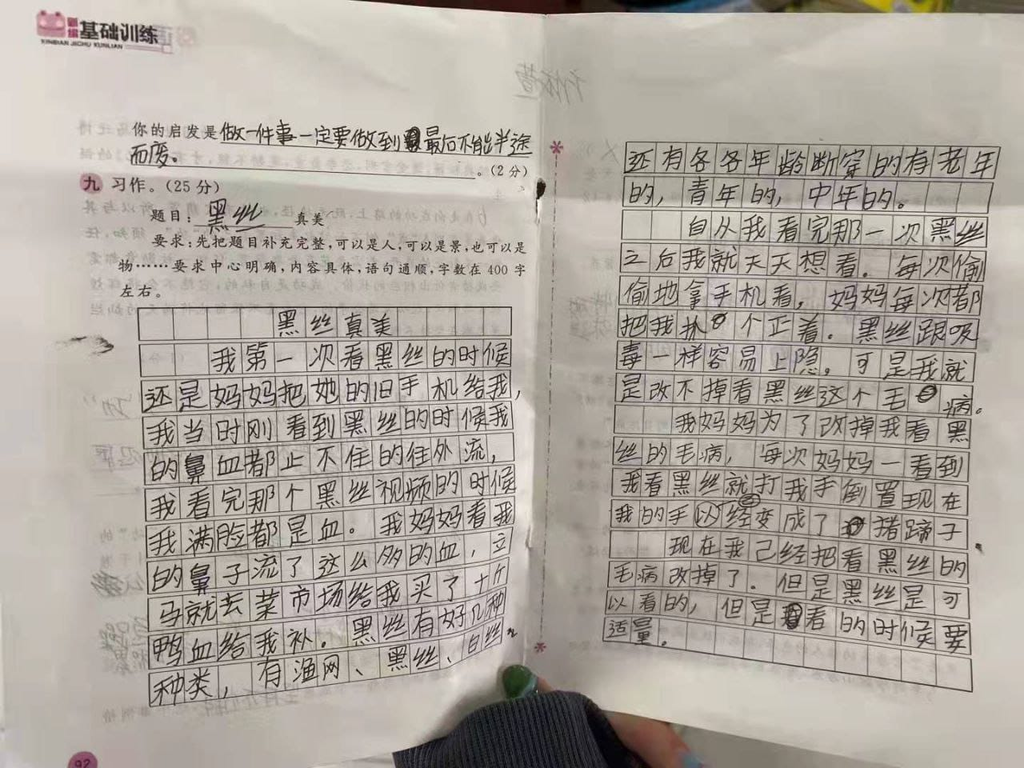 新编基础训练
XINBIAN JICHU XUNLIAN
你的启发是做一件事一定要做到最后不能半途
而废。。(2分)
九 习作。(25分)
题目：黑丝真美
要求：先把题目补充完整，可以是人，可以是景，也可以是
物……要求中心明确，内容具体，语句通顺，字数在400字
左右。
黑丝真美
我第一次看黑丝的时候
还是妈妈把她的旧手机给我，
我当时刚看到黑丝的时候我
的鼻血都止不住的往外流，
我看完那个黑丝视频的时候
我满脸都是血。我妈妈看我
的鼻子流了这么多的血，立
马就去菜市场给我买了十个
鸭血给我补。黑丝有好几种
种类，有渔网、黑丝、白丝。
92
还有各各年龄断穿的有老年
的，青年的，中年的。
自从我看完那一次黑丝
之后我就天天想看。每次偷
偷地拿手机看，妈妈每次都
把我抓个正着。黑丝跟吸
毒一样容易上隐。可是我就
是改不掉看黑丝这个毛病。
我妈妈为了改掉我看黑
丝的毛病，每次妈妈一看到
我看黑丝就打我手倒置现在
我的手以经变成了猪蹄子
现在我己经把看黑丝的
毛病改掉了。但是黑丝是可
以看的，但是看的时候要
适量。